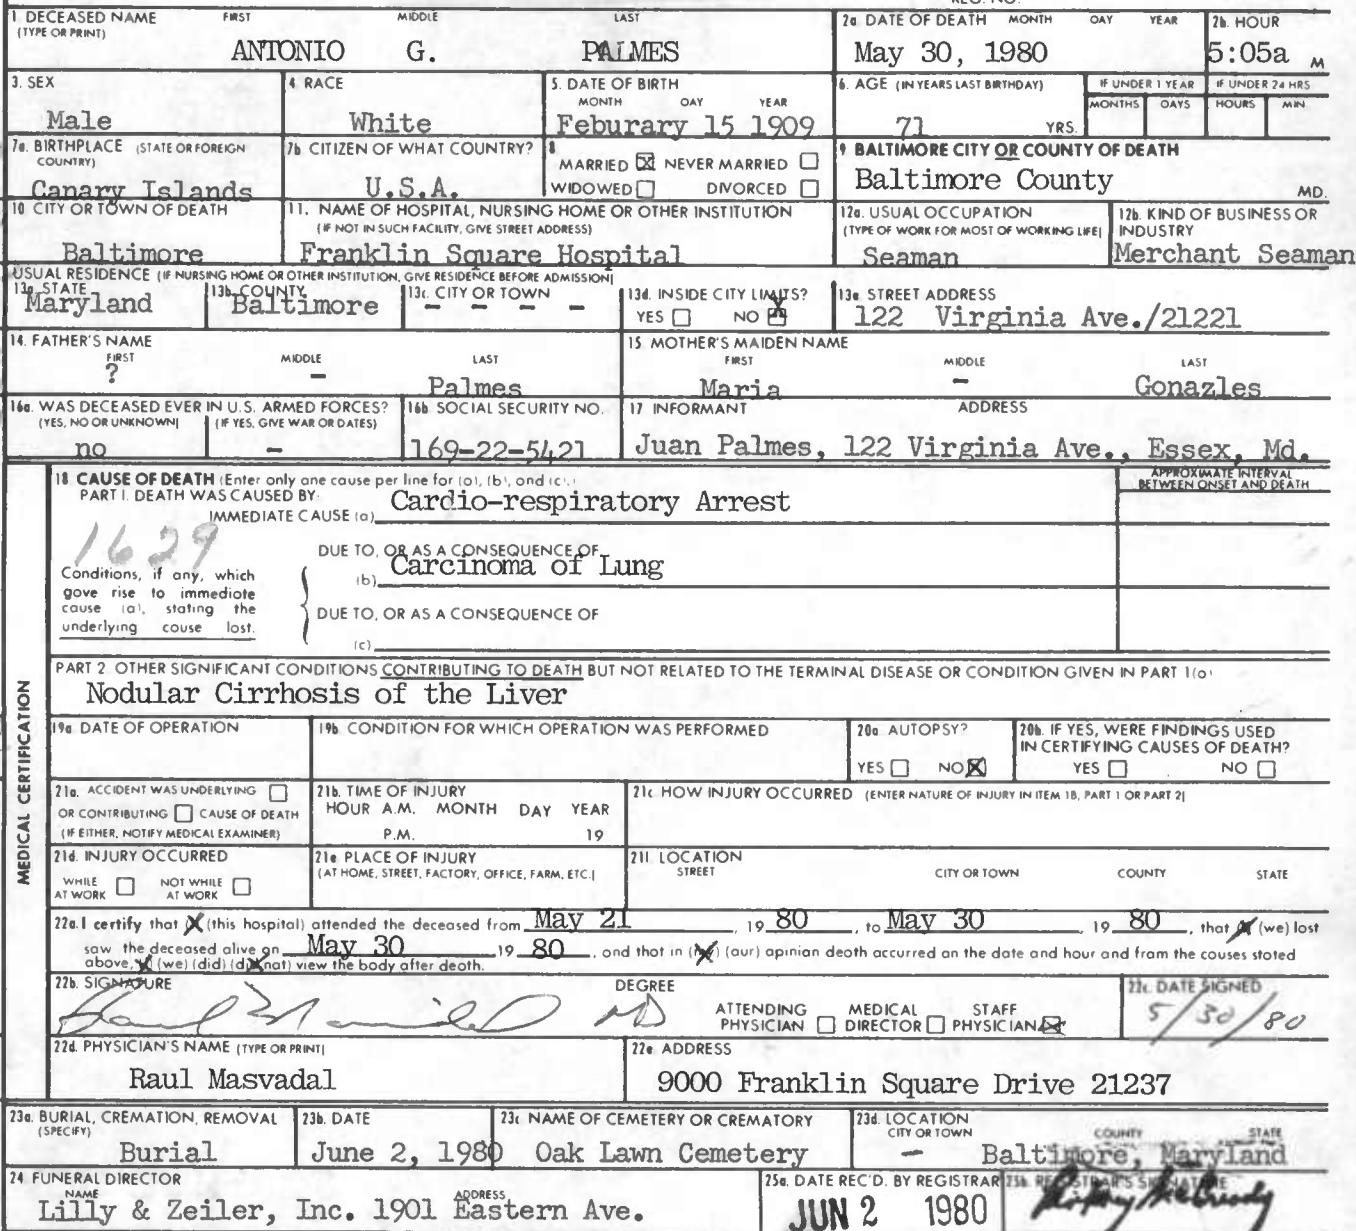 REG. NO.
1 DECEASED NAME FIRST MIDDLE LAST
(TYPE OR PRINT)
ANTONIO G. PALMES
2a DATE OF DEATH MONTH DAY YEAR
May 30, 1980
2b. HOUR
5:05a M
3. SEX
Male
4 RACE
White
5. DATE OF BIRTH
MONTH DAY YEAR
Feburary 15 1909
6. AGE (IN YEARS LAST BIRTHDAY)
71 YRS.
IF UNDER 1 YEAR
MONTHS DAYS
IF UNDER 24 HRS
HOURS MIN
7a. BIRTHPLACE (STATE OR FOREIGN
COUNTRY)
Canary Islands
7b CITIZEN OF WHAT COUNTRY?
U.S.A.
8
MARRIED ☒ NEVER MARRIED ☐
WIDOWED ☐ DIVORCED ☐
9 BALTIMORE CITY OR COUNTY OF DEATH
Baltimore County MD.
10 CITY OR TOWN OF DEATH
Baltimore
11. NAME OF HOSPITAL, NURSING HOME OR OTHER INSTITUTION
(IF NOT IN SUCH FACILITY, GIVE STREET ADDRESS)
Franklin Square Hospital
12a. USUAL OCCUPATION
(TYPE OF WORK FOR MOST OF WORKING LIFE)
Seaman
12b. KIND OF BUSINESS OR
INDUSTRY
Merchant Seaman
USUAL RESIDENCE (IF NURSING HOME OR OTHER INSTITUTION, GIVE RESIDENCE BEFORE ADMISSION)
13a STATE
Maryland
13b. COUNTY
Baltimore
13c. CITY OR TOWN
- - - -
13d. INSIDE CITY LIMITS?
YES ☐ NO ☒
13e STREET ADDRESS
122 Virginia Ave./21221
14. FATHER'S NAME
FIRST MIDDLE LAST
? - Palmes
15 MOTHER'S MAIDEN NAME
FIRST MIDDLE LAST
Maria - Gonazles
16a. WAS DECEASED EVER IN U.S. ARMED FORCES?
(YES, NO OR UNKNOWN) (IF YES, GIVE WAR OR DATES)
no -
16b. SOCIAL SECURITY NO.
169-22-5421
17 INFORMANT ADDRESS
Juan Palmes, 122 Virginia Ave., Essex, Md.
18 CAUSE OF DEATH (Enter only one cause per line for (a), (b), and (c).)
PART I. DEATH WAS CAUSED BY:
IMMEDIATE CAUSE (a) Cardio-respiratory Arrest
APPROXIMATE INTERVAL
BETWEEN ONSET AND DEATH
1629
Conditions, if any, which
gove rise to immediote
cause (a), stating the
underlying couse lost.
DUE TO, OR AS A CONSEQUENCE OF
(b) Carcinoma of Lung
DUE TO, OR AS A CONSEQUENCE OF
(c)
PART 2 OTHER SIGNIFICANT CONDITIONS CONTRIBUTING TO DEATH BUT NOT RELATED TO THE TERMINAL DISEASE OR CONDITION GIVEN IN PART 1(a)
Nodular Cirrhosis of the Liver
MEDICAL CERTIFICATION
19a DATE OF OPERATION
19b CONDITION FOR WHICH OPERATION WAS PERFORMED
20a AUTOPSY?
YES ☐ NO ☒
20b. IF YES, WERE FINDINGS USED
IN CERTIFYING CAUSES OF DEATH?
YES ☐ NO ☐
21a. ACCIDENT WAS UNDERLYING ☐
OR CONTRIBUTING ☐ CAUSE OF DEATH
(IF EITHER, NOTIFY MEDICAL EXAMINER)
21b. TIME OF INJURY
HOUR A.M. MONTH DAY YEAR
P.M. 19
21c HOW INJURY OCCURRED (ENTER NATURE OF INJURY IN ITEM 18, PART 1 OR PART 2)
21d. INJURY OCCURRED
WHILE ☐ NOT WHILE ☐
AT WORK AT WORK
21e PLACE OF INJURY
(AT HOME, STREET, FACTORY, OFFICE, FARM, ETC.)
21f LOCATION
STREET CITY OR TOWN COUNTY STATE
22a. I certify that (this hospital) attended the deceased from May 21, 19 80, to May 30, 19 80, that (we) lost
saw the deceased alive on May 30 19 80, ond that in (my) (aur) apinian death accurred an the date and haur and fram the couses stoted
abave, (we) (did) (did nat) view the bady after deoth.
22b. SIGNATURE DEGREE
MD
ATTENDING MEDICAL STAFF
PHYSICIAN ☐ DIRECTOR ☐ PHYSICIAN ☒
22c. DATE SIGNED
5/30/80
22d. PHYSICIAN'S NAME (TYPE OR PRINT)
Raul Masvadal
22e ADDRESS
9000 Franklin Square Drive 21237
23a. BURIAL, CREMATION, REMOVAL
(SPECIFY)
Burial
23b. DATE
June 2, 1980
23c NAME OF CEMETERY OR CREMATORY
Oak Lawn Cemetery
23d. LOCATION
CITY OR TOWN COUNTY STATE
- Baltimore, Maryland
24 FUNERAL DIRECTOR
NAME ADDRESS
Lilly & Zeiler, Inc. 1901 Eastern Ave.
25a. DATE REC'D. BY REGISTRAR
JUN 2 1980
25b. REGISTRAR'S SIGNATURE